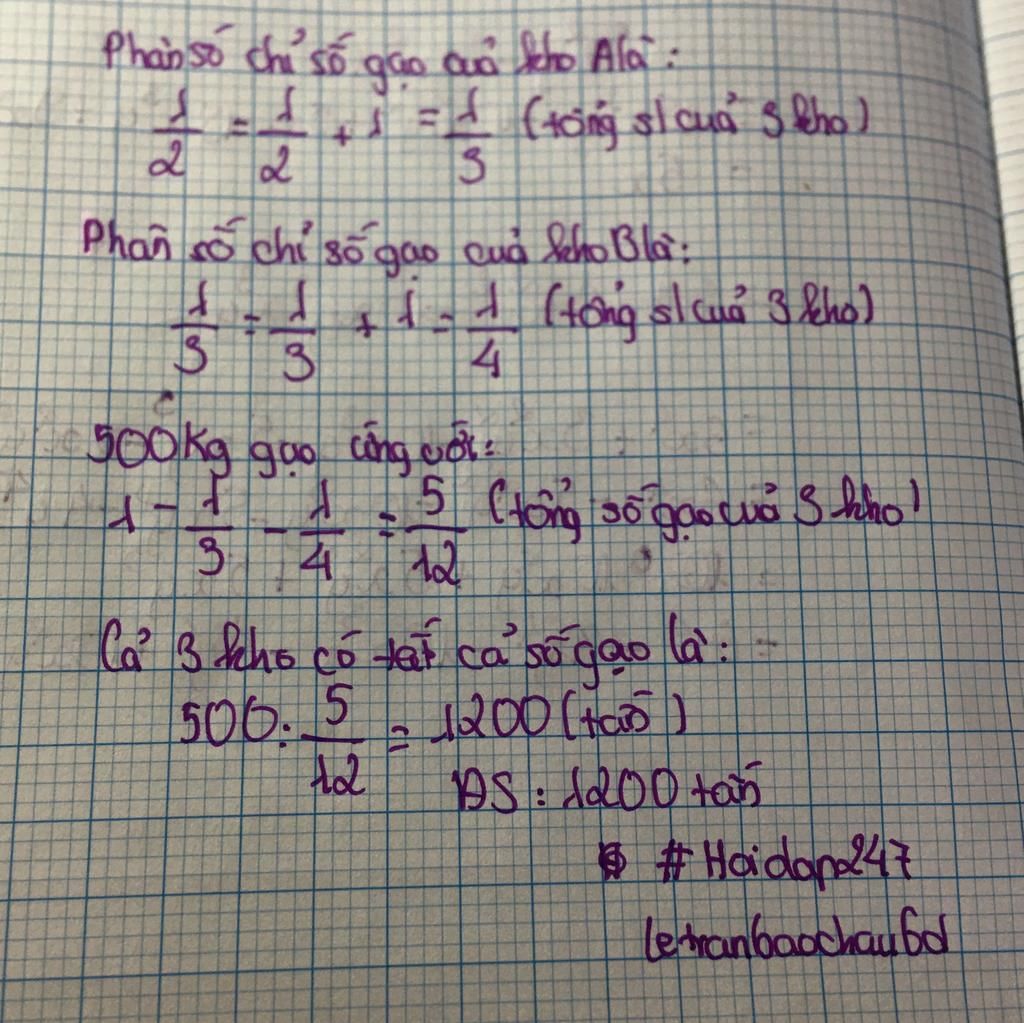 Phân số chỉ số gạo cuả kho A là:
1/2 = 1/2 + 1 = 1/3 (tổng sl cuả 3 kho)
Phân số chỉ số gạo cuả kho B là:
1/3 = 1/3 + 1 = 1/4 (tổng sl cuả 3 kho)
500Kg gạo ứng với:
1 - 1/3 - 1/4 = 5/12 (tổng số gạo cuả 3 kho)
Cả 3 kho có tất cả số gạo là:
500 : 5/12 = 1200 (tấn)
ĐS : 1200 tấn
# Hoidap247
letranbaochau6d